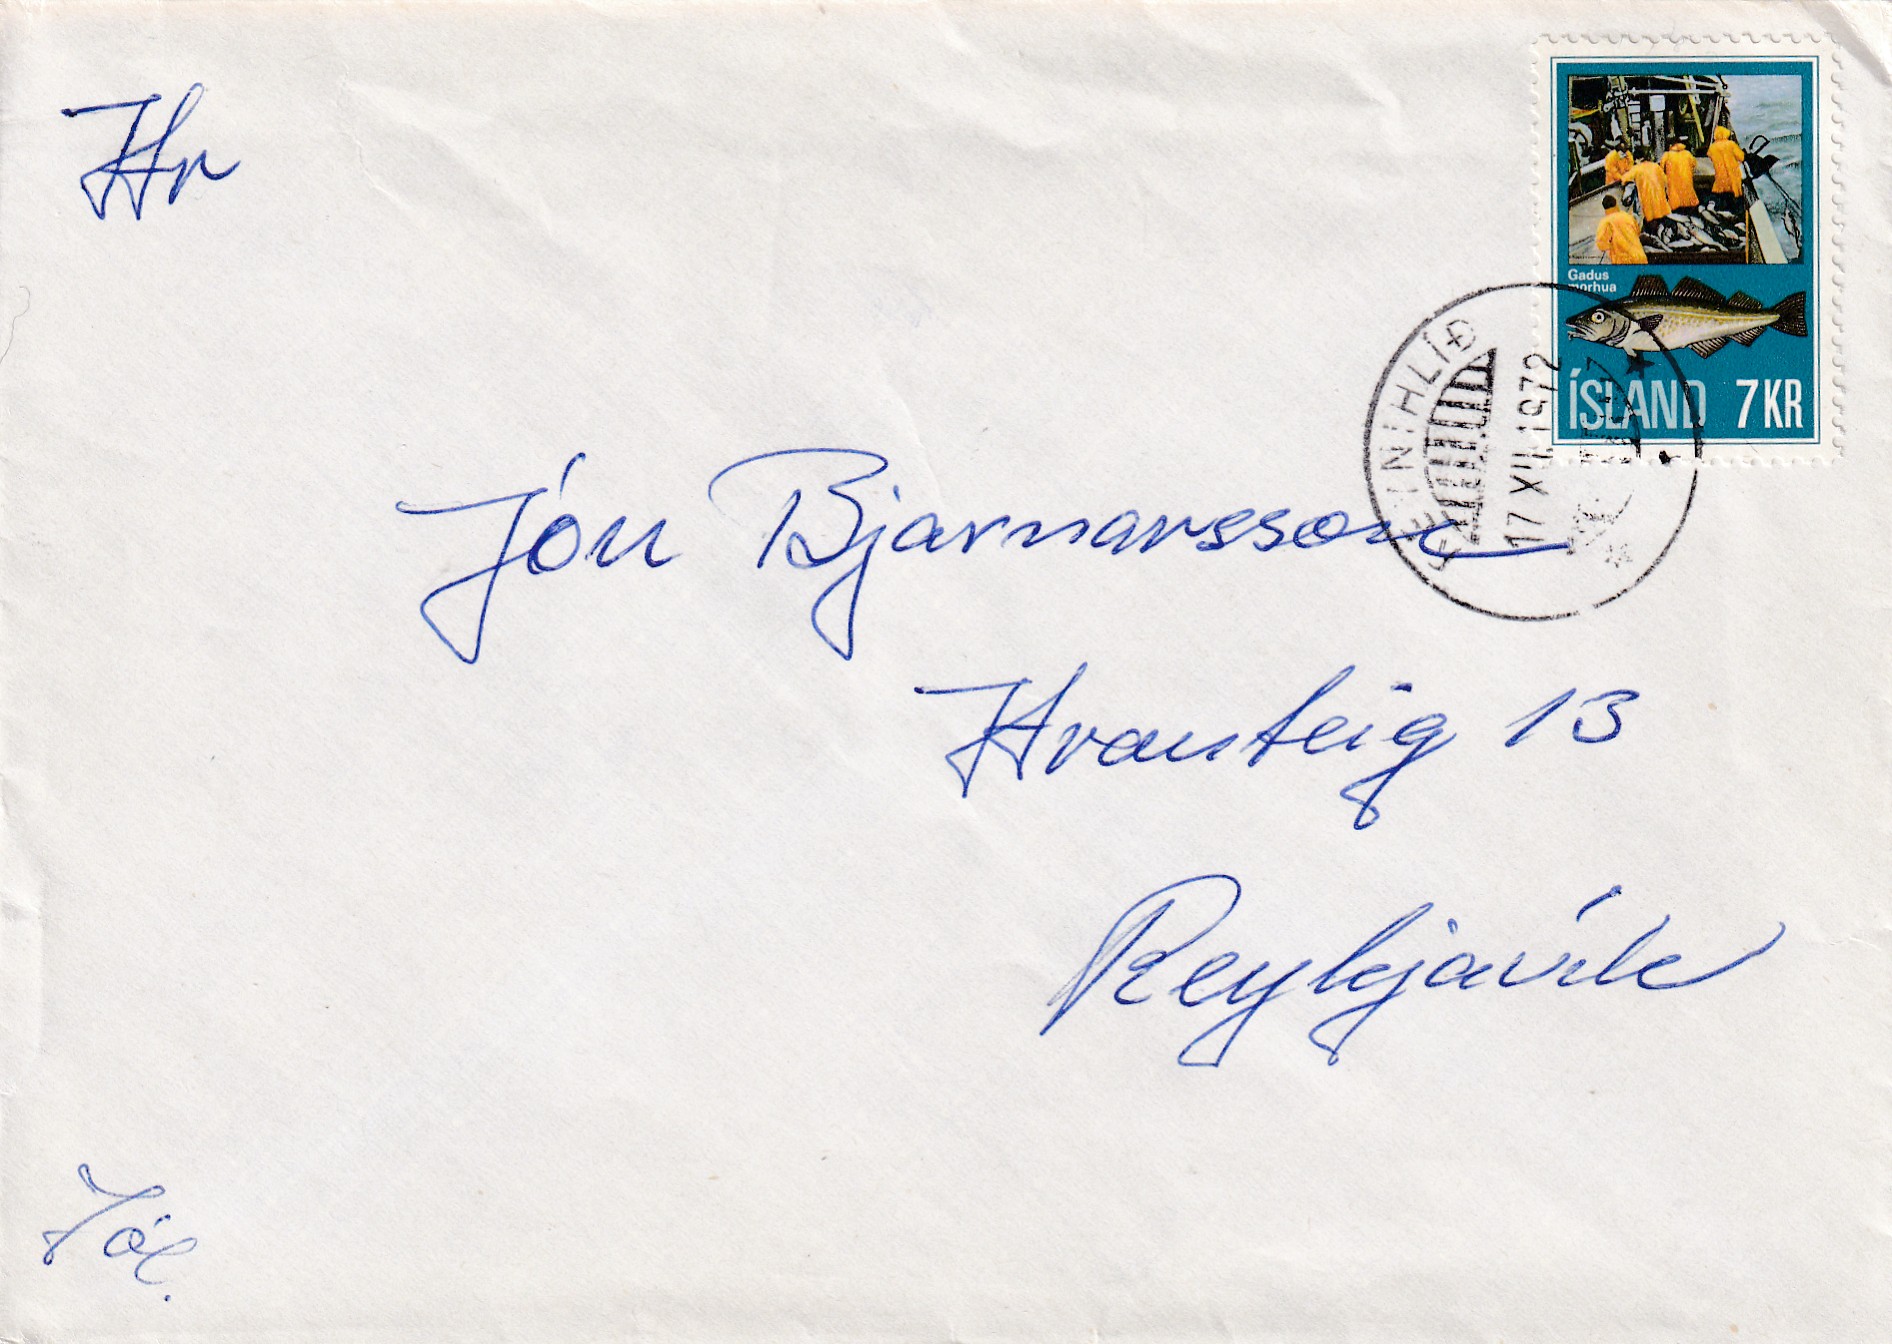 Hr
Gadus
morhua
ÍSLAND 7 KR
REYNIHLÍÐ
17 XII. 1972
Jón Bjarnarsson
Hrauteig 13
Reykjavík
Jól.